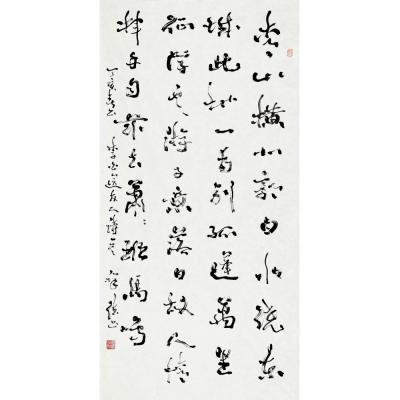 青山橫北郭白水繞東
城此地一為別孤蓬萬里
征浮雲游子意落日故人情
揮手自茲去蕭〻班馬鳴
丁亥 李白送友人詩一首